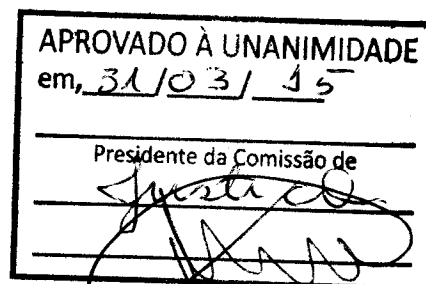 APROVADO À UNANIMIDADE
em, 31/03/15
Presidente da Comissão de
Justiça